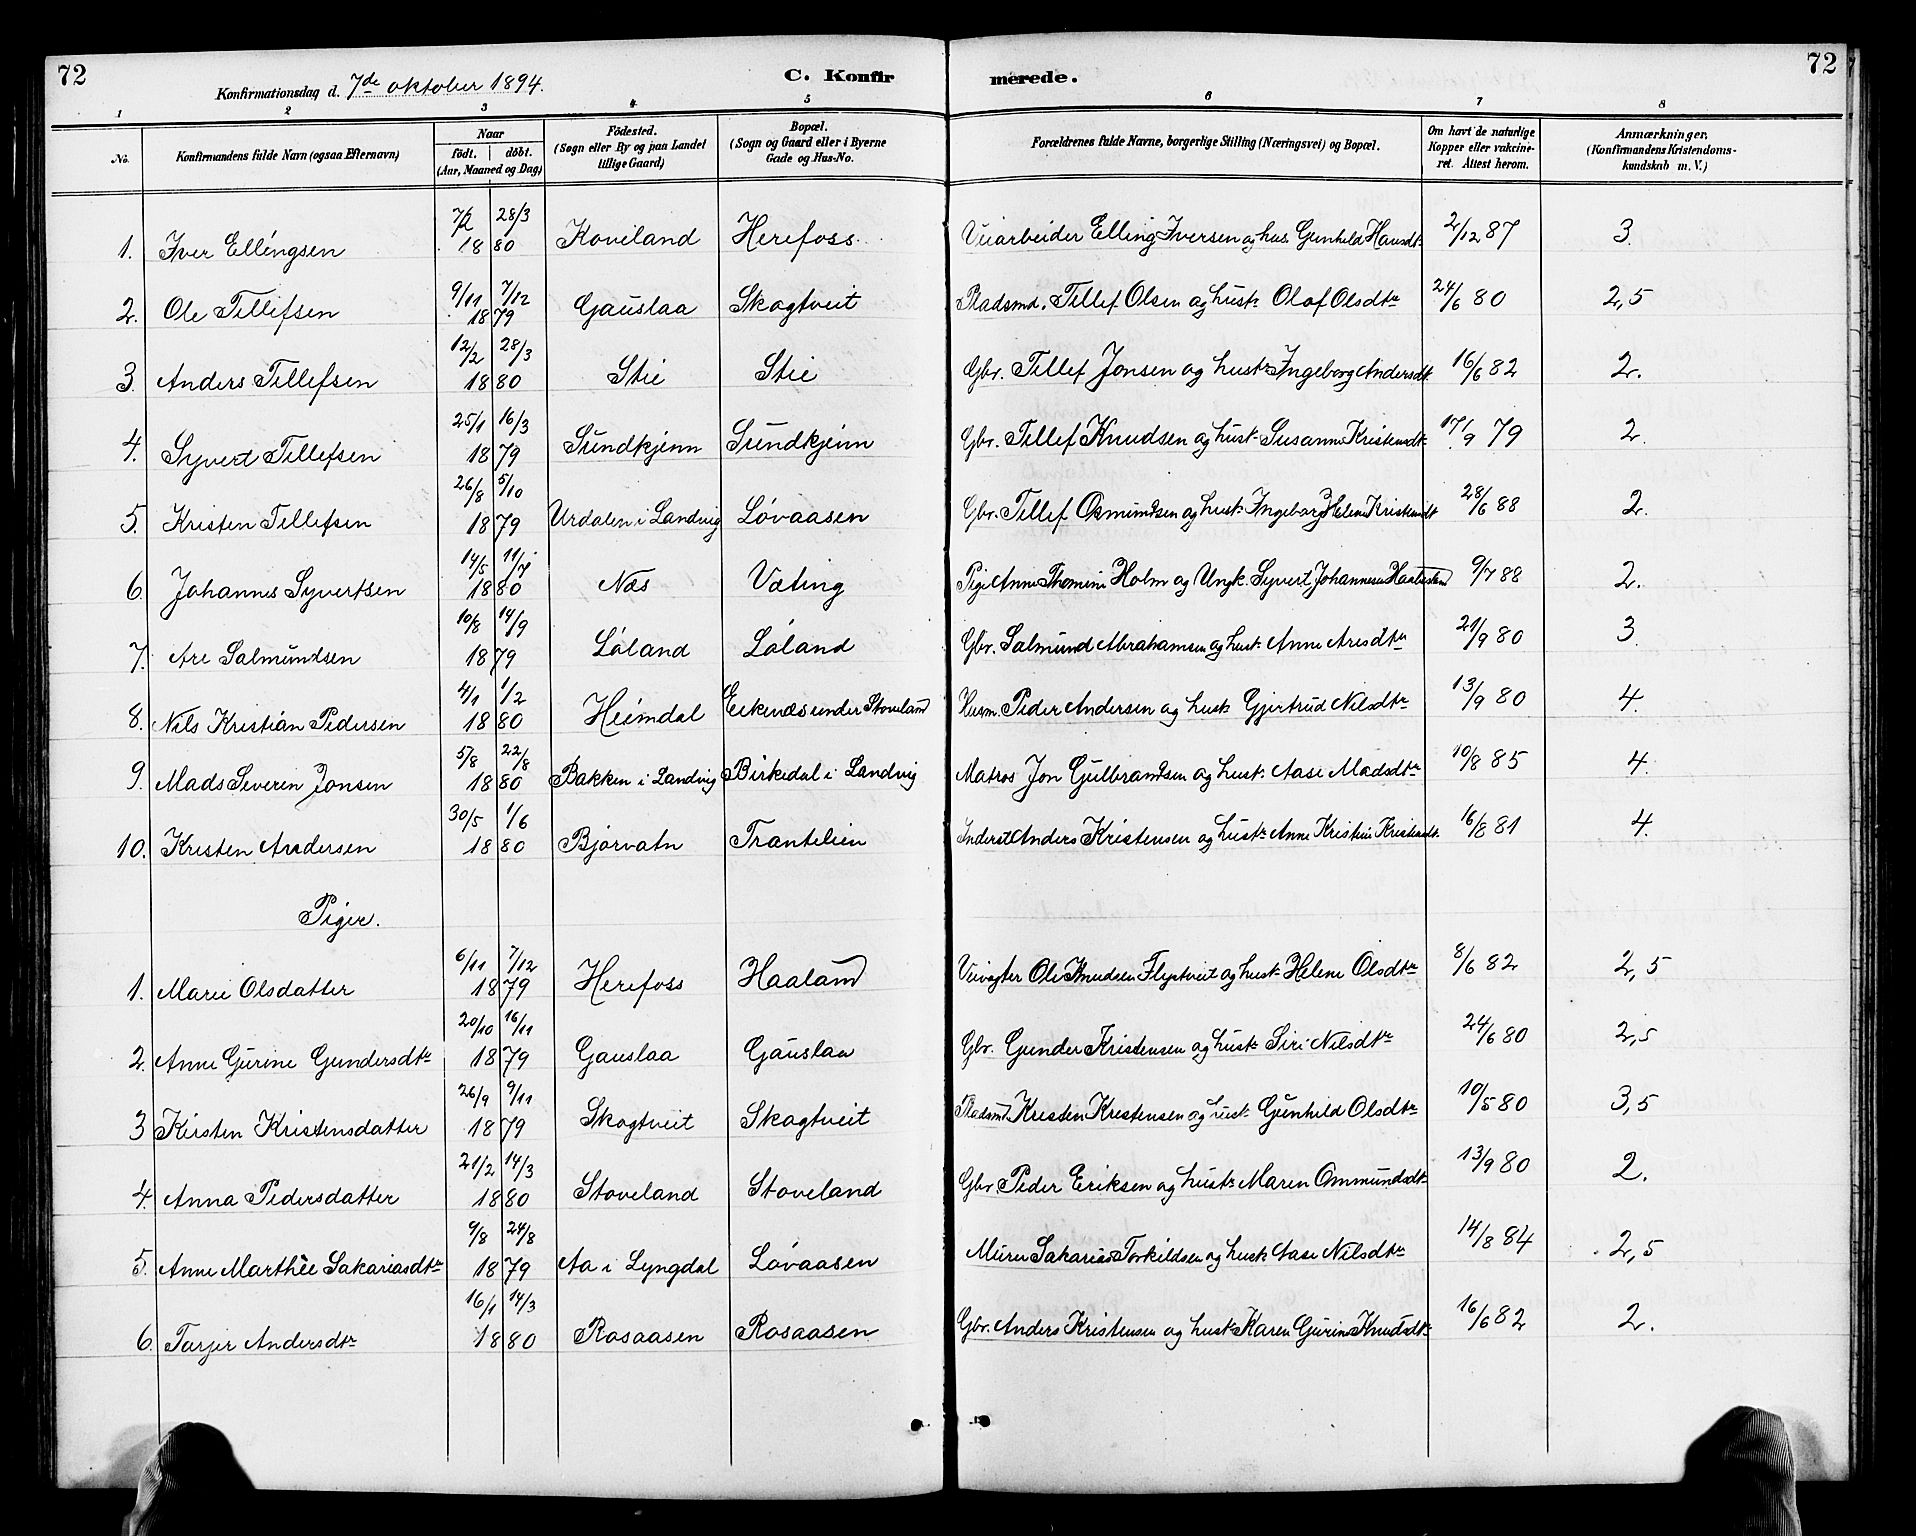 72
Konfirmationsdag d. 7de oktober 1894.
C. Konfirmerede.
72
1 2 3 4 5 6 7 8
No. | Konfirmandens fulde Navn (ogsaa Efternavn) | Naar født. | døbt. (Aar, Maaned og Dag) | Fødested. (Sogn eller By og paa Landet tillige Gaard) | Bopæl. (Sogn og Gaard eller i Byerne Gade og Hus-No. | Forældrenes fulde Navne, borgerlige Stilling (Næringsvei) og Bopæl. | Om havt de naturlige Kopper eller vakcineret. Attest herom. | Anmærkninger, (Konfirmandens Kristendomskundskab m. V.)
1. Iver Ellingsen 7/2 28/3 1880 Koveland Herefoss. Veiarbeider Elling Iversen og hus. Gunhild Hansdt. 2/12 87 3.
2. Ole Tellefsen 9/11 7/12 1879 Gauslaa Skogtveit Pladsmd. Tellef Olsen og hustr Olaf Olsdtr 24/6 80 2,5
3. Anders Tellefsen 12/2 28/3 1880 Stie Stie Gbr. Tellef Jonsen og hustr Ingeborg Andersdt. 16/6 82 2.
4. Syvert Tellefsen 25/1 16/3 1879 Sundkjenn Sundkjenn Gbr. Tellef Knudsen og hustr Susanne Kristensdt 17/9 79 2.
5. Kristen Tellefsen 26/8 5/10 1879 Urdalen i Landvig Løvaasen Gbr. Tellef Osmundsen og hustr Ingeborg Helene Kristensdt 28/6 88 2.
6. Johannes Syvertsen 14/5 11/7 1880 Næs Væting Pige Anne Thomine Holm og Ungk. Syvert Johannesen 9/7 88 2.
7. Are Salmundsen 10/8 14/9 1879 Løland Løland Gbr. Salmund Abrahamsen og hustr Anne Aresdtr 21/9 80 3
8. Nils Kristian Pedersen 4/1 1/2 1880 Heimdal Eekenæs under Stoveland Husm. Peder Andersen og hustr Gjertrud Nilsdtr 13/9 80 4.
9. Mads Severin Jonsen 5/8 22/8 1880 Bakken i Landvig Birkedal i Landvig Matros Jon Gulbrandsen og hustr Aase Madsdtr 10/8 85 4.
10. Kristen Andersen 30/5 1/6 1880 Bjorvatn Trantelien Inderst Anders Kristensen og hustr Anne Kristine Kristensdt. 16/8 81 4.
Piger.
1. Marie Olsdatter 6/11 7/12 1879 Herefoss Haaland Veivogter Ole Knudsen Flystveit og hustr Helene Olsdtr 8/6 82 2,5
2. Anne Gurine Gundersdtr 20/10 16/11 1879 Gauslaa Gauslaa Gbr. Gunder Kristensen og hustr Siri Nilsdtr 24/6 80 2,5
3 Kirsten Kristensdatter 26/9 9/11 1879 Skogtveit Skogtveit Pladsmd Kristen Kristensen og hustr Gunhild Olsdtr 10/5 80 3,5
4. Anna Pedersdatter 21/2 14/3 1880 Stoveland Stoveland Gbr. Peder Eriksen og hustr Maren Ommundsdtr 13/9 80 2.
5. Anne Marthee Sakariasdtr 9/8 24/8 1879 Aa i Lyngdal Løvaasen Murer Sakarias Torkildsen og hustr Aase Nilsdtr 14/8 84 2,5
6. Tarjer Andersdtr 16/1 14/3 1880 Rosaasen Rosaasen Gbr. Anders Kristensen og hustr Karen Gurine Knudsdtr 16/6 82 2.